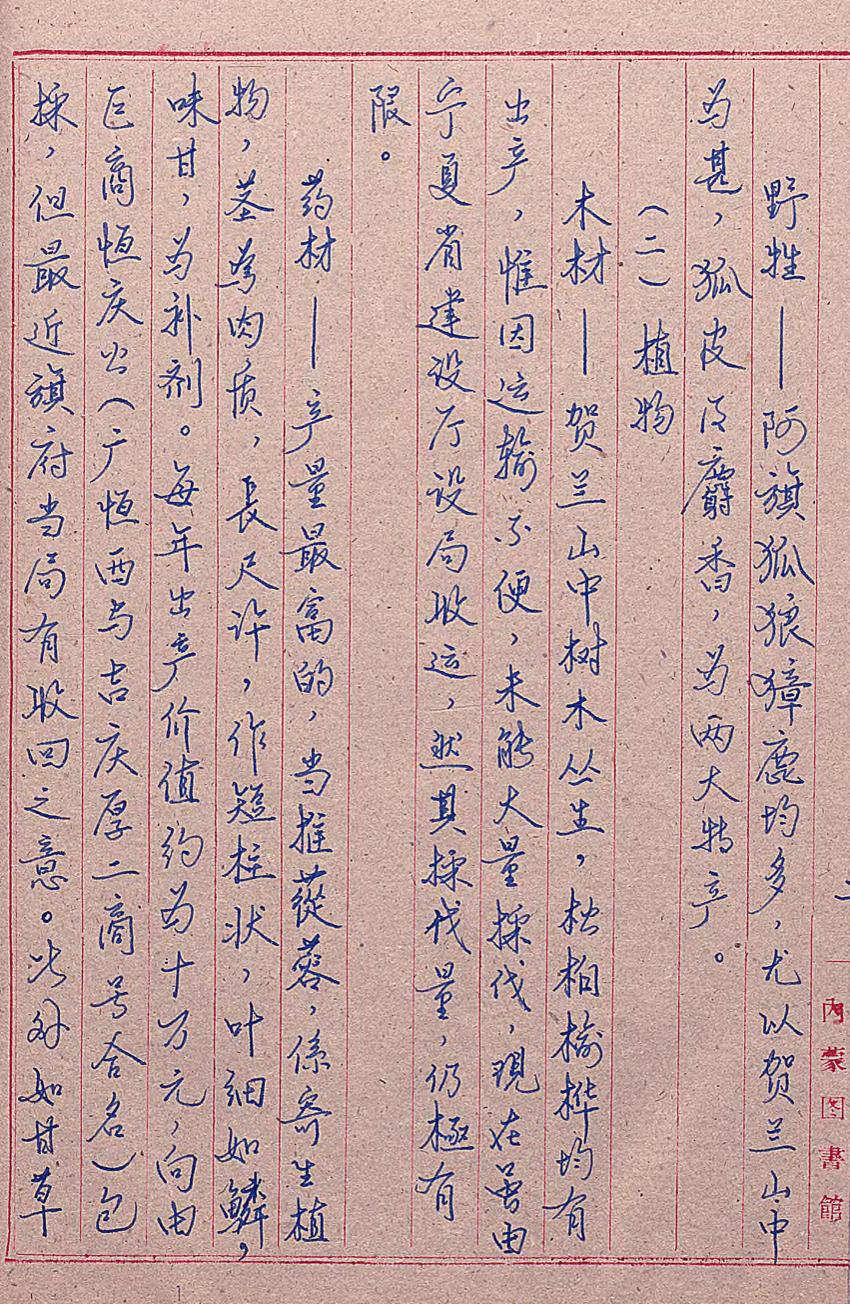 野牲——阿旗狐狼獐鹿均多，尤以贺兰山中
为甚，狐皮及麝香，为两大特产。
（二）植物
木材——贺兰山中树木丛生，松柏榆桦均有
出产，惟因运输不便，未能大量採伐，现在曾由
宁夏省建设厅设局收运，然其採伐量，仍極有
限。
药材——产量最富的，当推蓯蓉，係寄生植
物，茎为肉质，長尺许，作短柱状，叶细如鳞，
味甘，为补剂。每年出产价值约为十万元，向由
巨商恒庆公（广恒西与吉庆厚二商号合名）包
採，但最近旗府当局有收回之意。此外如甘草
內蒙図書館